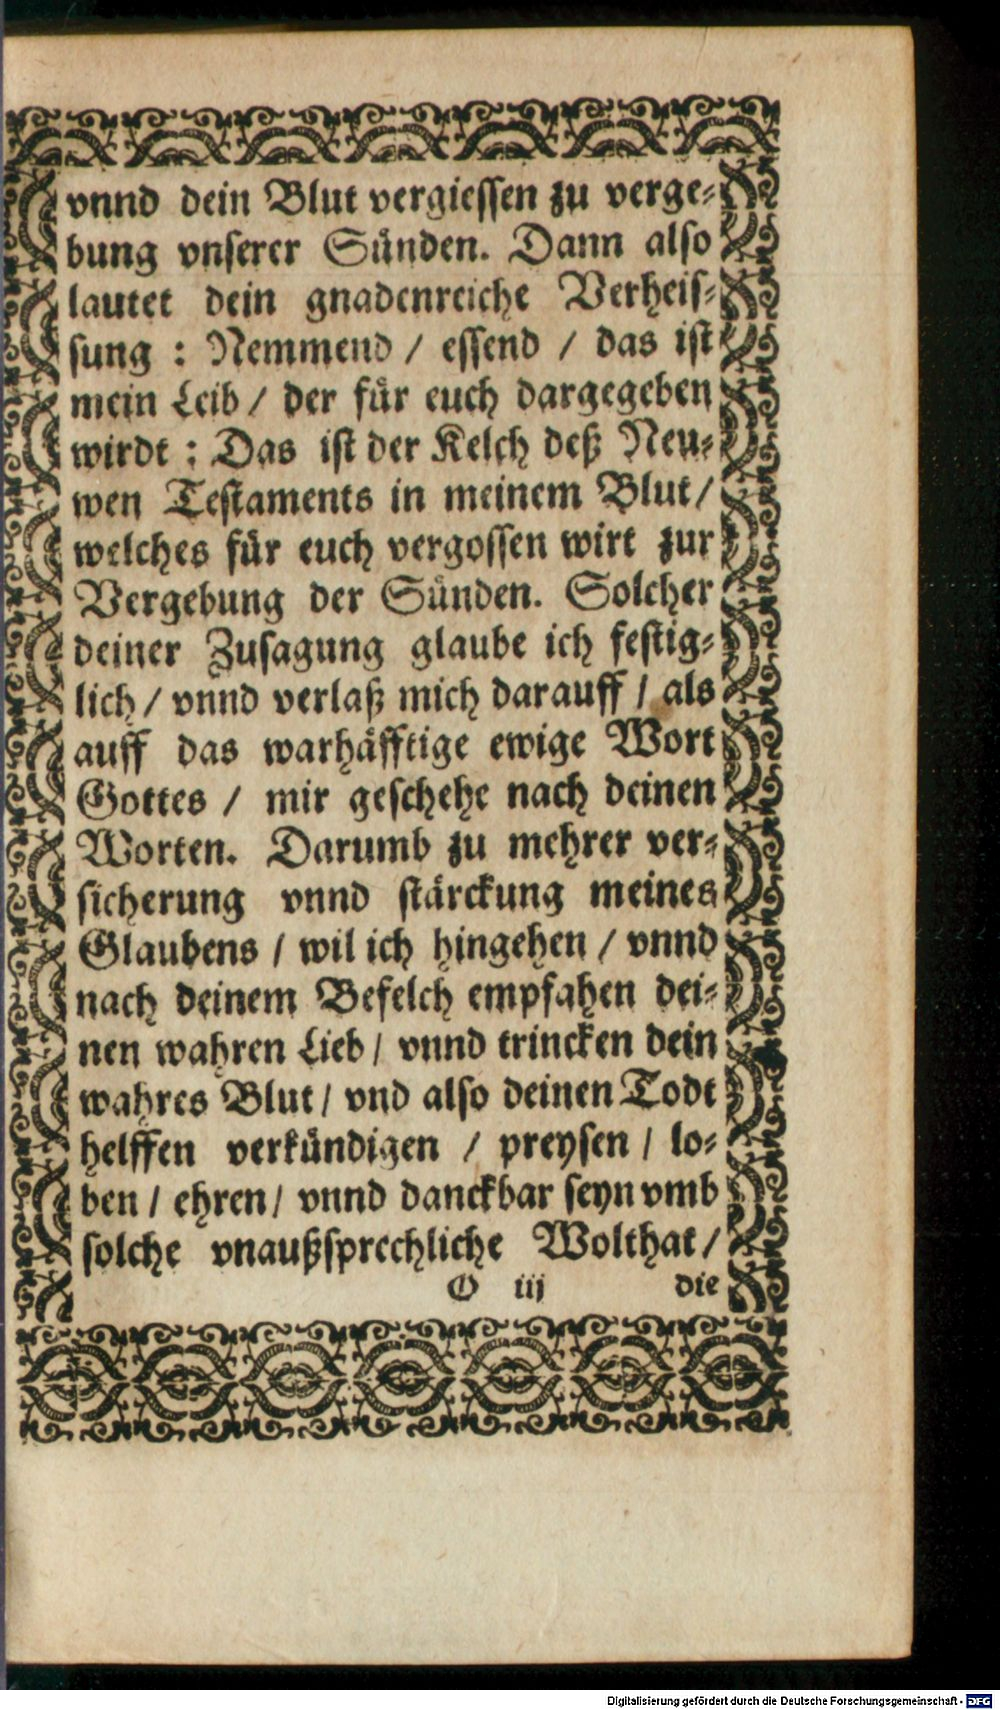 vnnd dein Blut vergiessen zu verge⸗
bung vnserer Sünden. Dann also
lautet dein gnadenreiche Verheis⸗
sung : Nemmend / essend / das ist
mein Leib / der für euch dargegeben
wirdt : Das ist der Kelch deß Neu⸗
wen Testaments in meinem Blut /
welches für euch vergossen wirt zur
Vergebung der Sünden. Solcher
deiner Zusagung glaube ich festig⸗
lich / vnnd verlaß mich darauff / als
auff das warhäfftige ewige Wort
Gottes / mir geschehe nach deinen
Worten. Darumb zu mehrer ver⸗
sicherung vnnd stärckung meines
Glaubens / wil ich hingehen / vnnd
nach deinem Befelch empfahen dei⸗
nen wahren Lieb / vnnd trincken dein
wahres Blut / vnd also deinen Todt
helffen verkündigen / preysen / lo⸗
ben / ehren / vnnd danckbar seyn vmb
solche vnaußsprechliche Wolthat /
O iij die
Digitalisierung gefördert durch die Deutsche Forschungsgemeinschaft - DFG